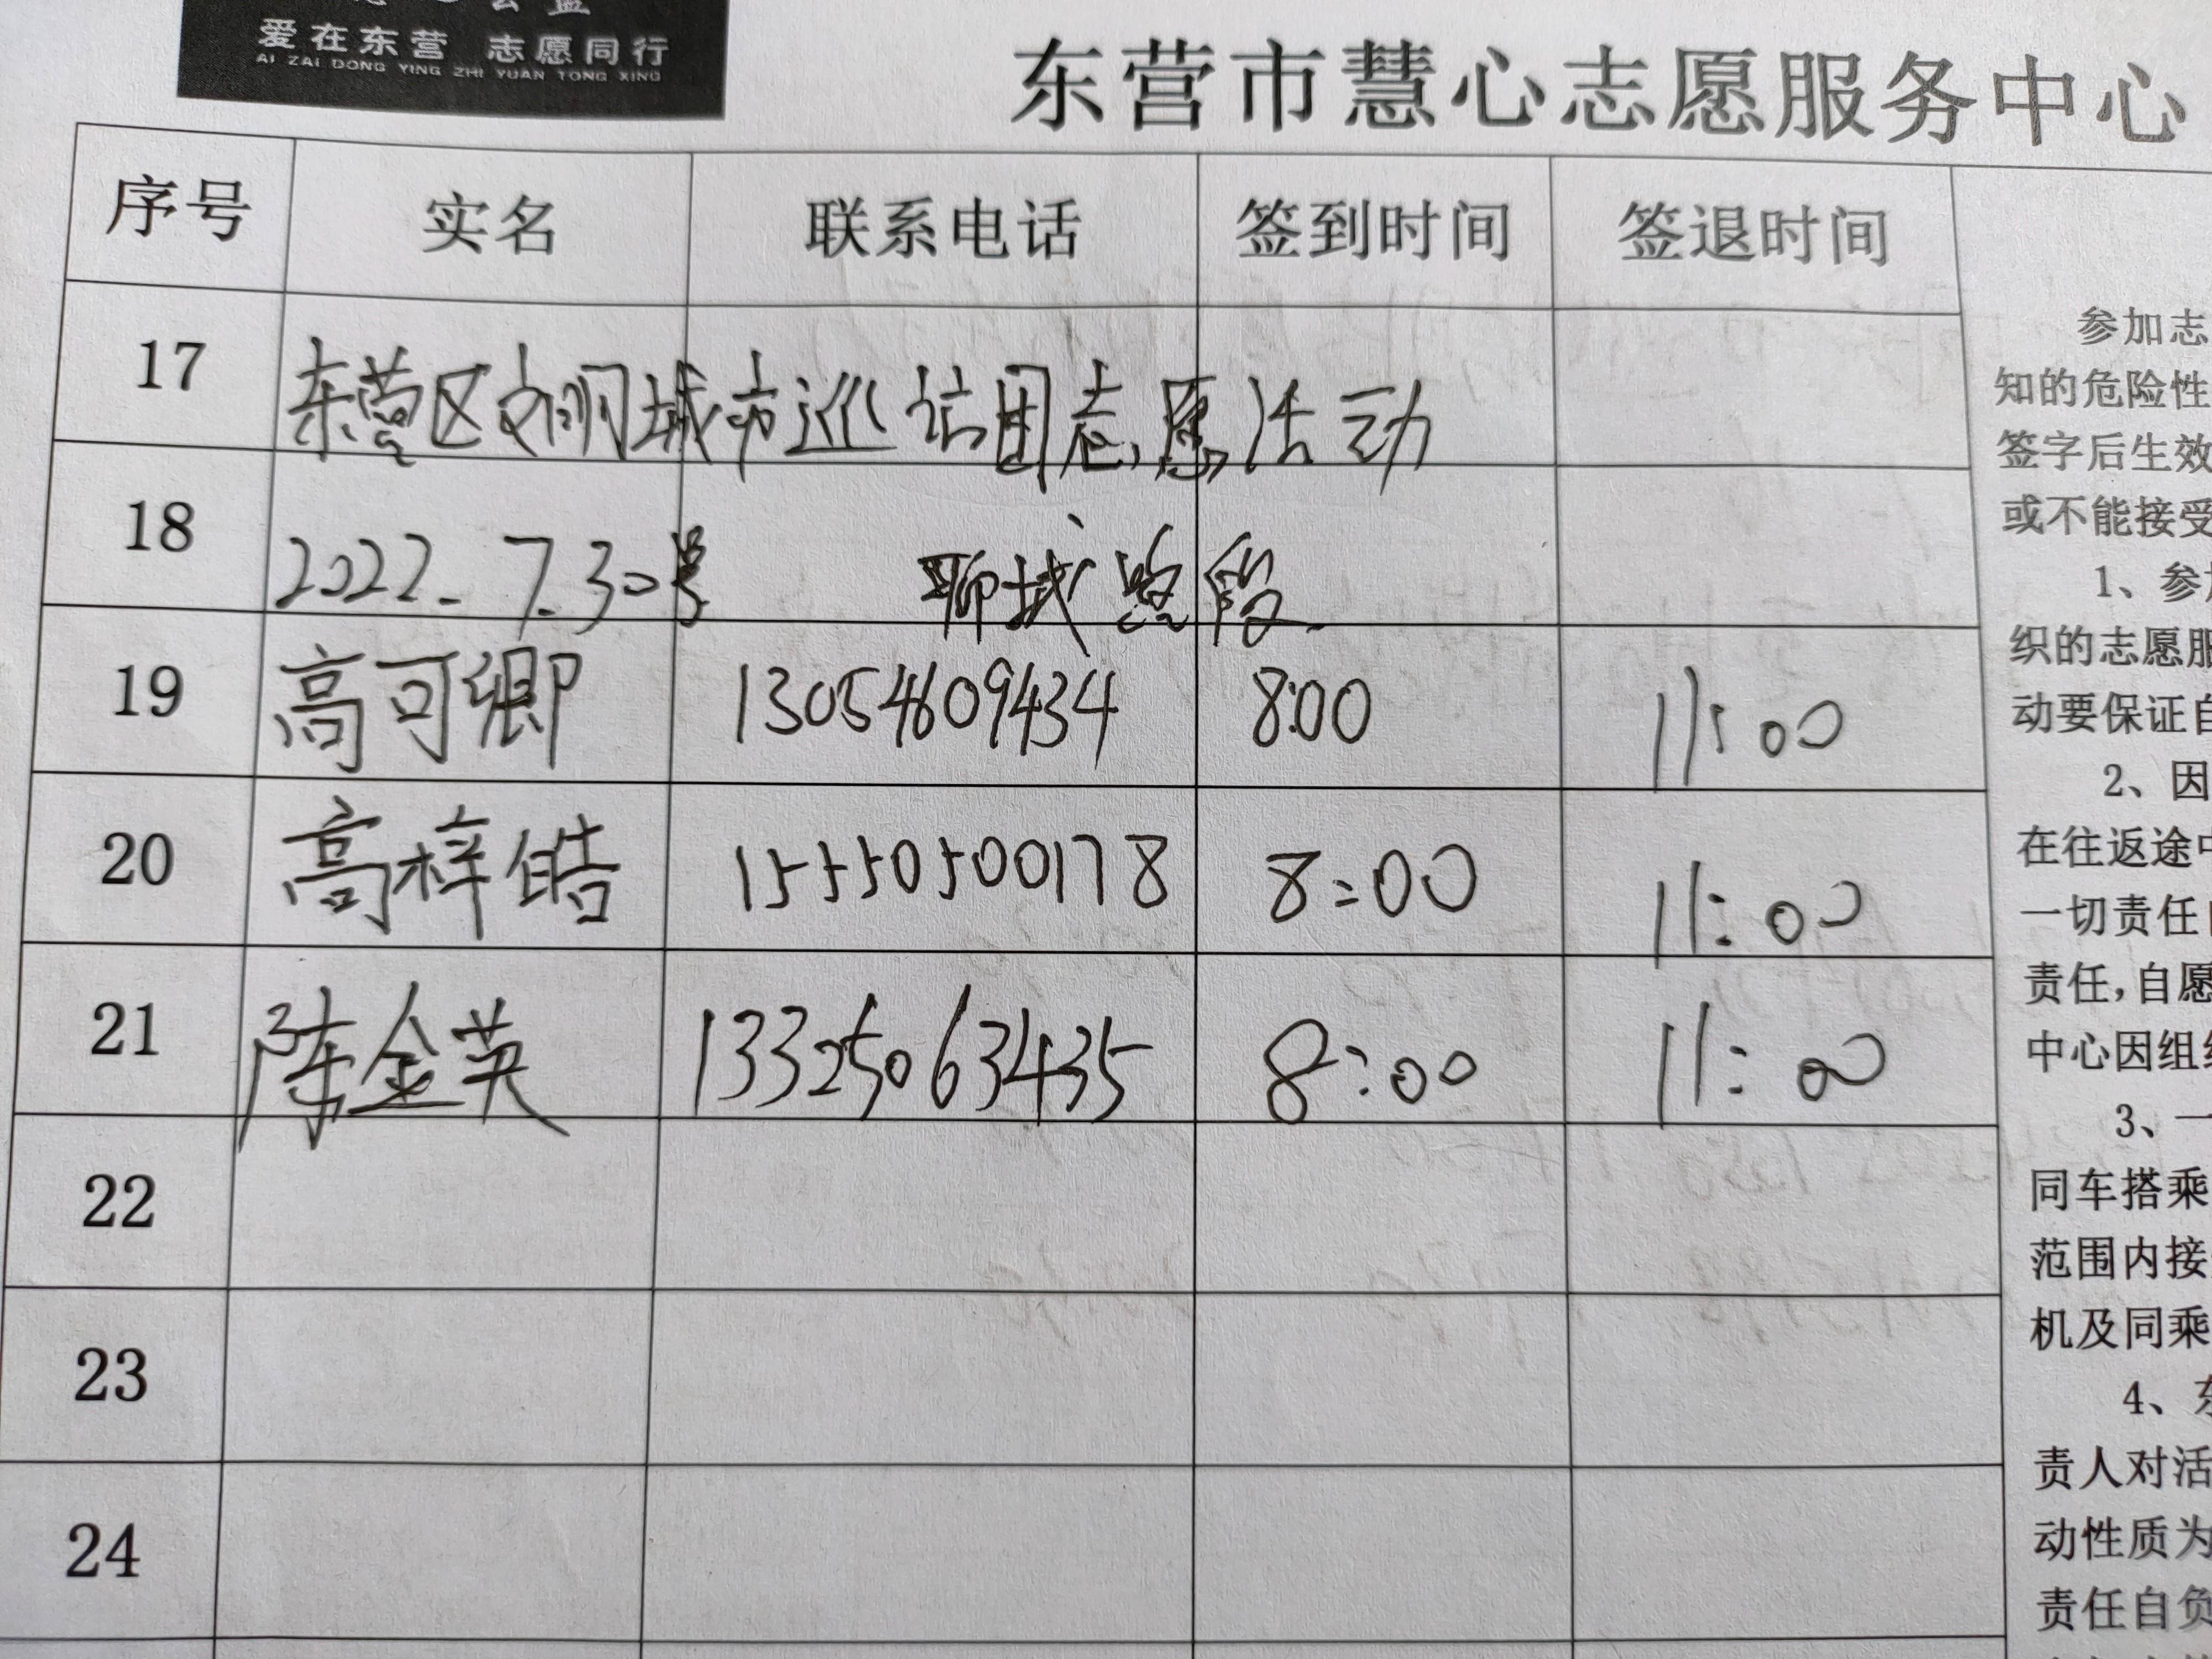 公益
爱在东营 志愿同行
AI ZAI DONG YING ZHI YUAN TONG XING
东营市慧心志愿服务中心
序号 实名 联系电话 签到时间 签退时间
17 东营区文明城市巡访团志愿活动
18 2022.7.30号 聊城路段
19 高可卿 13054609434 8:00 11:00
20 高梓皓 15550500178 8:00 11:00
21 陈金英 13325063435 8:00 11:00
22
23
24
参加志
知的危险性
签字后生效
或不能接受
1、参加
织的志愿服
动要保证自
2、因
在往返途中
一切责任自
责任,自愿
中心因组织
3、一
同车搭乘
范围内接
机及同乘
4、东
责人对活
动性质为
责任自负